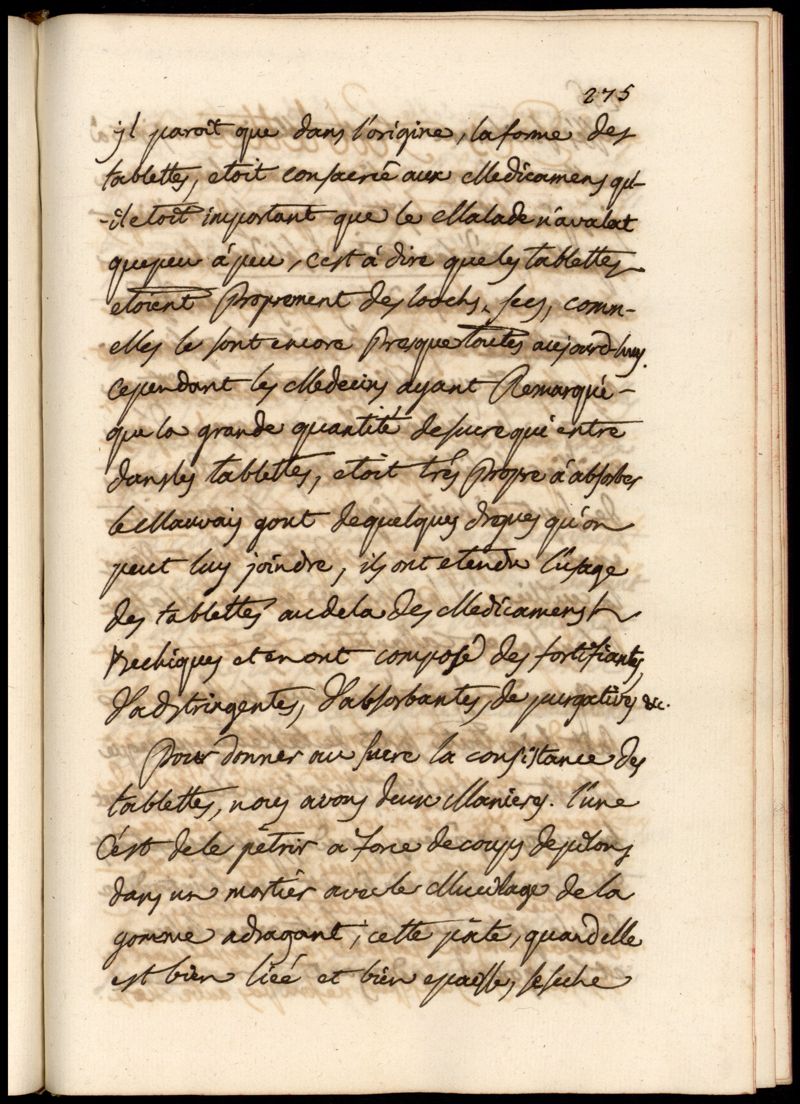 275
jl paroit que dans l'origine, la forme des
tablettes, etoit consacrié aux Medicamens qu-
-il etoit important que le Malade n'avalat
quepeu á peu, c'est á dire que les tablettes
etoient Proprement des loochs secs, comm-
elles le sont encore Presque toutes aujourd-huy.
cependant les Medecins ayant Remarqué-
que la grande quantité de sucre qui entre
dans les tablettes, etoit trés Propre á absorber
le Mauvais gout de quelques drogues qu'on
peut luy joindre, ils ont etendu l'usage
des tablettes au dela des Medicamens
bechiques et en ont composé des fortifiantes,
d'adstringentes, d'absorbantes, de purgatives &c.
Pour donner au sucre la consistance des
tablettes, nous avons deux Manieres. l'une
C'est de le pétrir a force de coups de pilons
dans un mortiér avec le Mucilage de la
gomme adragant; cette páte, quand elle
est bien liée et bien epaisse, se seche